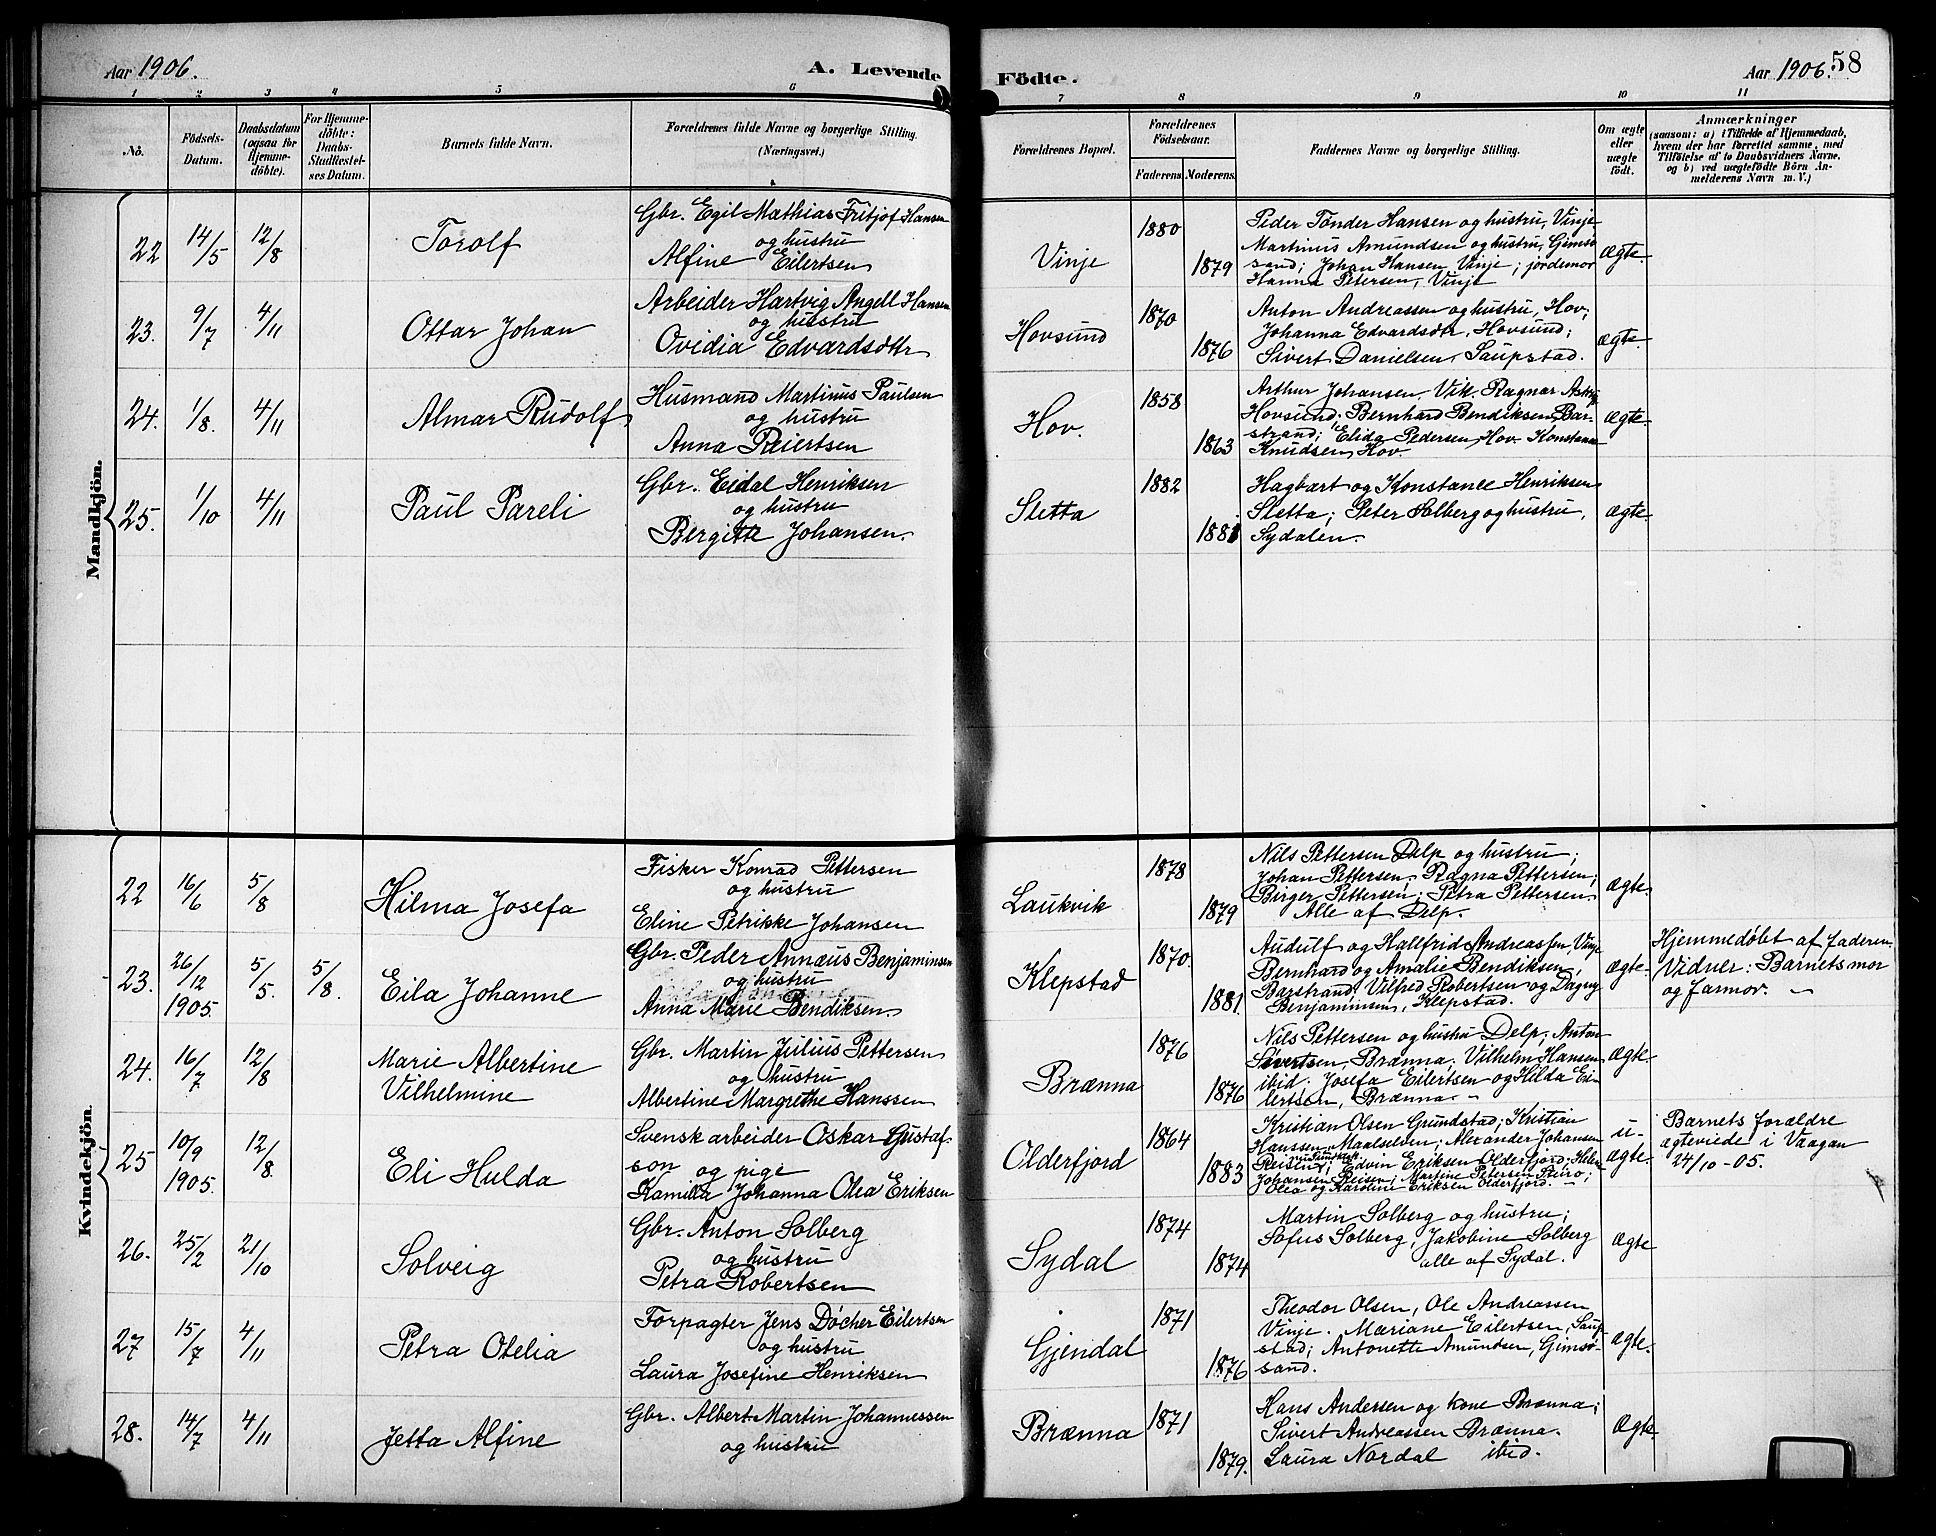 Aar 1906.
A. Levende
Födte.
Aar 1906. 58
1 2 3 4 5 6
7 8 9 10 11
No.
Födsels-
Datum.
Daabsdatum
(ogsaa for
Hjemme-
döbte).
For Hjemme-
döbte:
Daabs-
Stadfæstel-
ses Datum.
Barnets fulde Navn.
Forældrenes fulde Navne og borgerlige Stilling.
(Næringsvei.)
Forældrenes Bopæl.
Forældrenes
Födselsaar.
Faderens. Moderens.
Faddernes Navne og borgerlige Stilling.
Om ægte
eller
uægte
født.
Anmærkninger
(saasom: a) i Tilfælde af Hjemmedaab,
hvem der har forrettet samme, med
Tilföielse af to Daabsvidners Navne.
og b) ved uægtefödte Börn An-
melderens Navn m. V.)
Mandkjön.
22 14/5 12/8
Torolf
Gbr. Egil Mathias Fritjof Hansen
og hustru
Alfine Eilertsen
Vinje
1880
1879
Peder Tönder Hansen og hustru, Vinje
Martinus Amundsen og hustru, Gimsø
sand; Johan Hansen Vinje; jordemor
Hanna Petersen, Vinje
Ægte.
23. 9/7 4/11
Ottar Johan
Arbeider Hartvig Angell Hansen
og hustru
Ovidia Edvardsdtr
Hovsund
1870
1876
Anton Andreassen og hustru, Hov;
Johanna Edvardsdtr, Hovsund;
Sivert Danielsen, Saupstad.
Ægte.
24. 1/8. 4/11
Almar Rudolf
Husmand Martinus Paulsen
og hustru
Anna Reiertsen
Hov.
1858
1863
Arthur Johansen, Vik. Ragnar
Hovsund. Bernhard Bendiksen, Bar-
strand; Elida Pedersen, Hov. Konstanse
Knudsen, Hov.
Ægte.
25. 1/10 4/11
Paul Pareli
Gbr. Eidal Henriksen
og hustru
Bergitte Johansen.
Sletta
1882
1881
Hagbart og Konstance Henriksen
Sletta; Peter Solberg og hustru,
Sydalen.
Ægte.
Kvindekjön.
22 16/6 5/8
Hilma Josefa
Fisker Konrad Pettersen
og hustru
Eline Petrikke Johansen
Laukvik
1878
1879
Nils Pettersen Delp og hustru;
Johan Pettersen; Ragna Pettersen;
Birger Pettersen; Petra Pettersen
Alle af Delp.
Ægte.
23. 26/12 1905. 5/5. 5/8.
Eila Johanne
Gbr. Peder Annæus Benjaminsen
og hustru
Anna Marie Bendiksen.
Klepstad
1870.
1881.
Audulf og Hallfrid Andreassen, Vinje
Bernhard og Amalie Bendiksen,
Barstrand, Vilfred Robertsen og Dagny
Benjaminsen, Klepstad.
Ægte
Hjemmedøbt af faderen.
Vidner: Barnets mor
og farmor. –
24. 16/7 12/8
Marie Albertine
Vilhelmine
Gbr. Martin Julius Pettersen
og hustru
Albertine Margrethe Hanssen
Brænna
1876
1876
Nils Pettersen og hustru Delp; Anton
Sivertsen, Brænna; Vilhelm Hansen
ibid; Josefa Eilertsen og Hilda Ei-
lertsen, Brænna –
Ægte.
25 10/9 1905. 12/8.
Eli Hulda
Svensk arbeider Oskar Gustaf-
son og pige
Kamilla Johanna Olea Eriksen
Olderfjord
1864
1883
Kristian Olsen Grundstad; Kristian
Hanssen Maalselven; Alexander Johansen
Reisen; Edvin Eriksen Olderfjord;
Johansen Reisen; Martine Petersen
Olea og Karoline Eriksen Olderfjord. –
u-
ægte.
Barnets forældre
ægteviede i Vaagan
24/10 – 05.
26. 25/2 21/10
Solveig
Gbr. Anton Solberg
og hustru
Petra Robertsen
Sydal
1874
1874
Martin Solberg og hustru;
Sofus Solberg, Jakobine Solberg
alle af Sydal.
Ægte
27 15/7 4/11
Petra Otelia
Forpagter Jens Døcher Eilertsen
og hustru
Laura Josefine Henriksen
Gjendal
1871
1876
Theodor Olsen, Ole Andreassen
Vinje. Mariane Eilertsen, Saup-
stad; Antonette Amundsen, Gimsø-
sand.
Ægte.
28. 14/7 4/11
Jetta Alfine
Gbr. Albert Martin Johannessen
og hustru
Brænna
1871
1879.
Hans Andersen og kone Brænna;
Sivert Andreassen Brænna.
Laura Nordal ibid.
Ægte